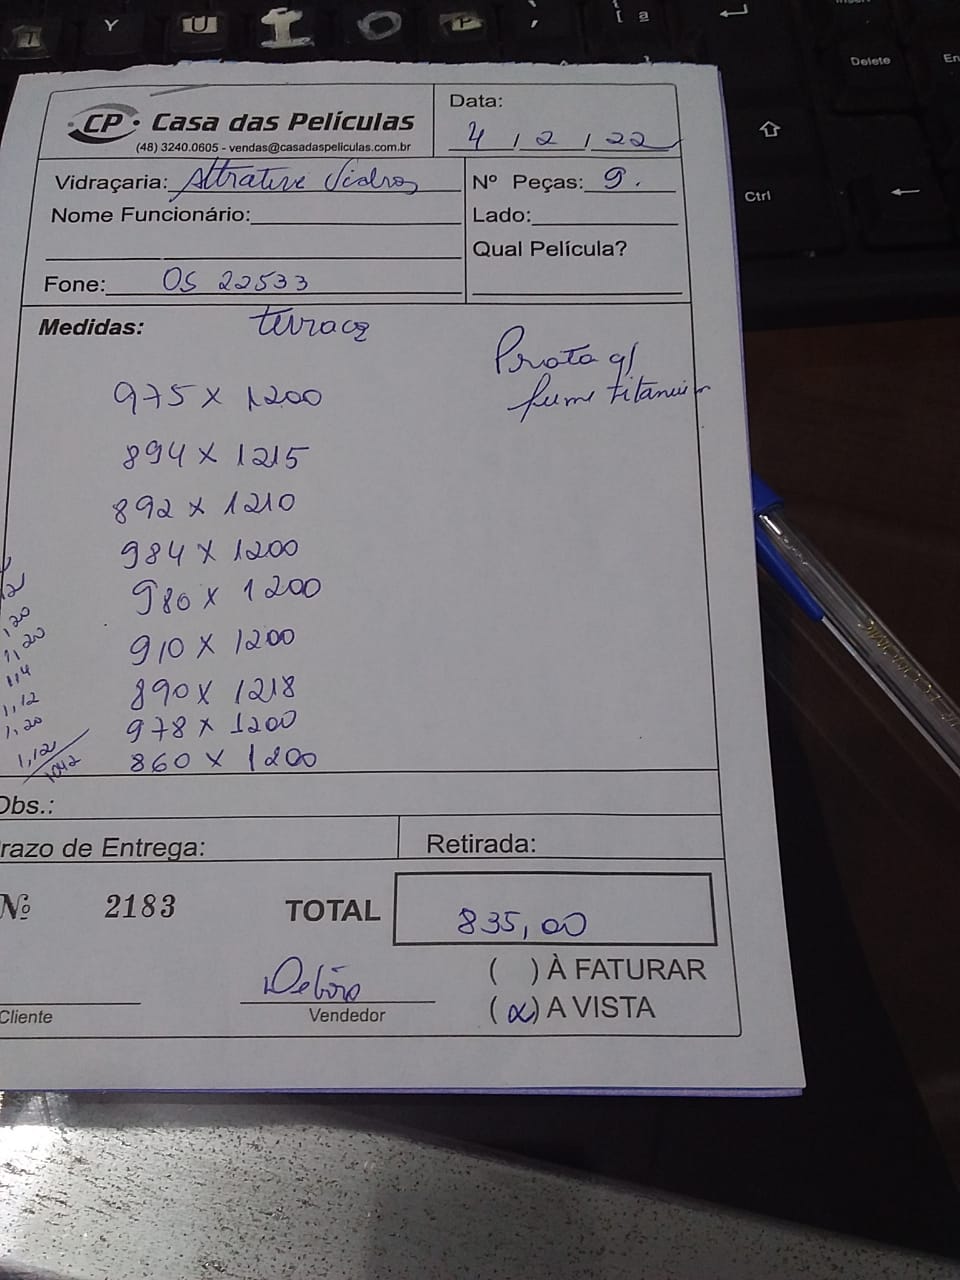 CP Casa das Películas
(48) 3240.0605 - vendas@casadaspeliculas.com.br
Data:
4 / 2 / 22
Vidraçaria: Attrative Vidros
Nº Peças: 9.
Nome Funcionário:
Lado:
Qual Película?
Fone: OS 22533
Medidas:
terrace
Prata c/
fume titanium
975 x 1200
894 x 1215
892 x 1210
984 x 1200
980 x 1200
910 x 1200
890 x 1218
978 x 1200
860 x 1200
,20
1,20
1,14
1,12
1,20
1,12
1042
Obs.:
razo de Entrega:
Retirada:
Nº 2183
TOTAL 835,00
Debóra
( ) À FATURAR
(x) A VISTA
Cliente
Vendedor
Y
U
I
O
P
Delete
Ctrl